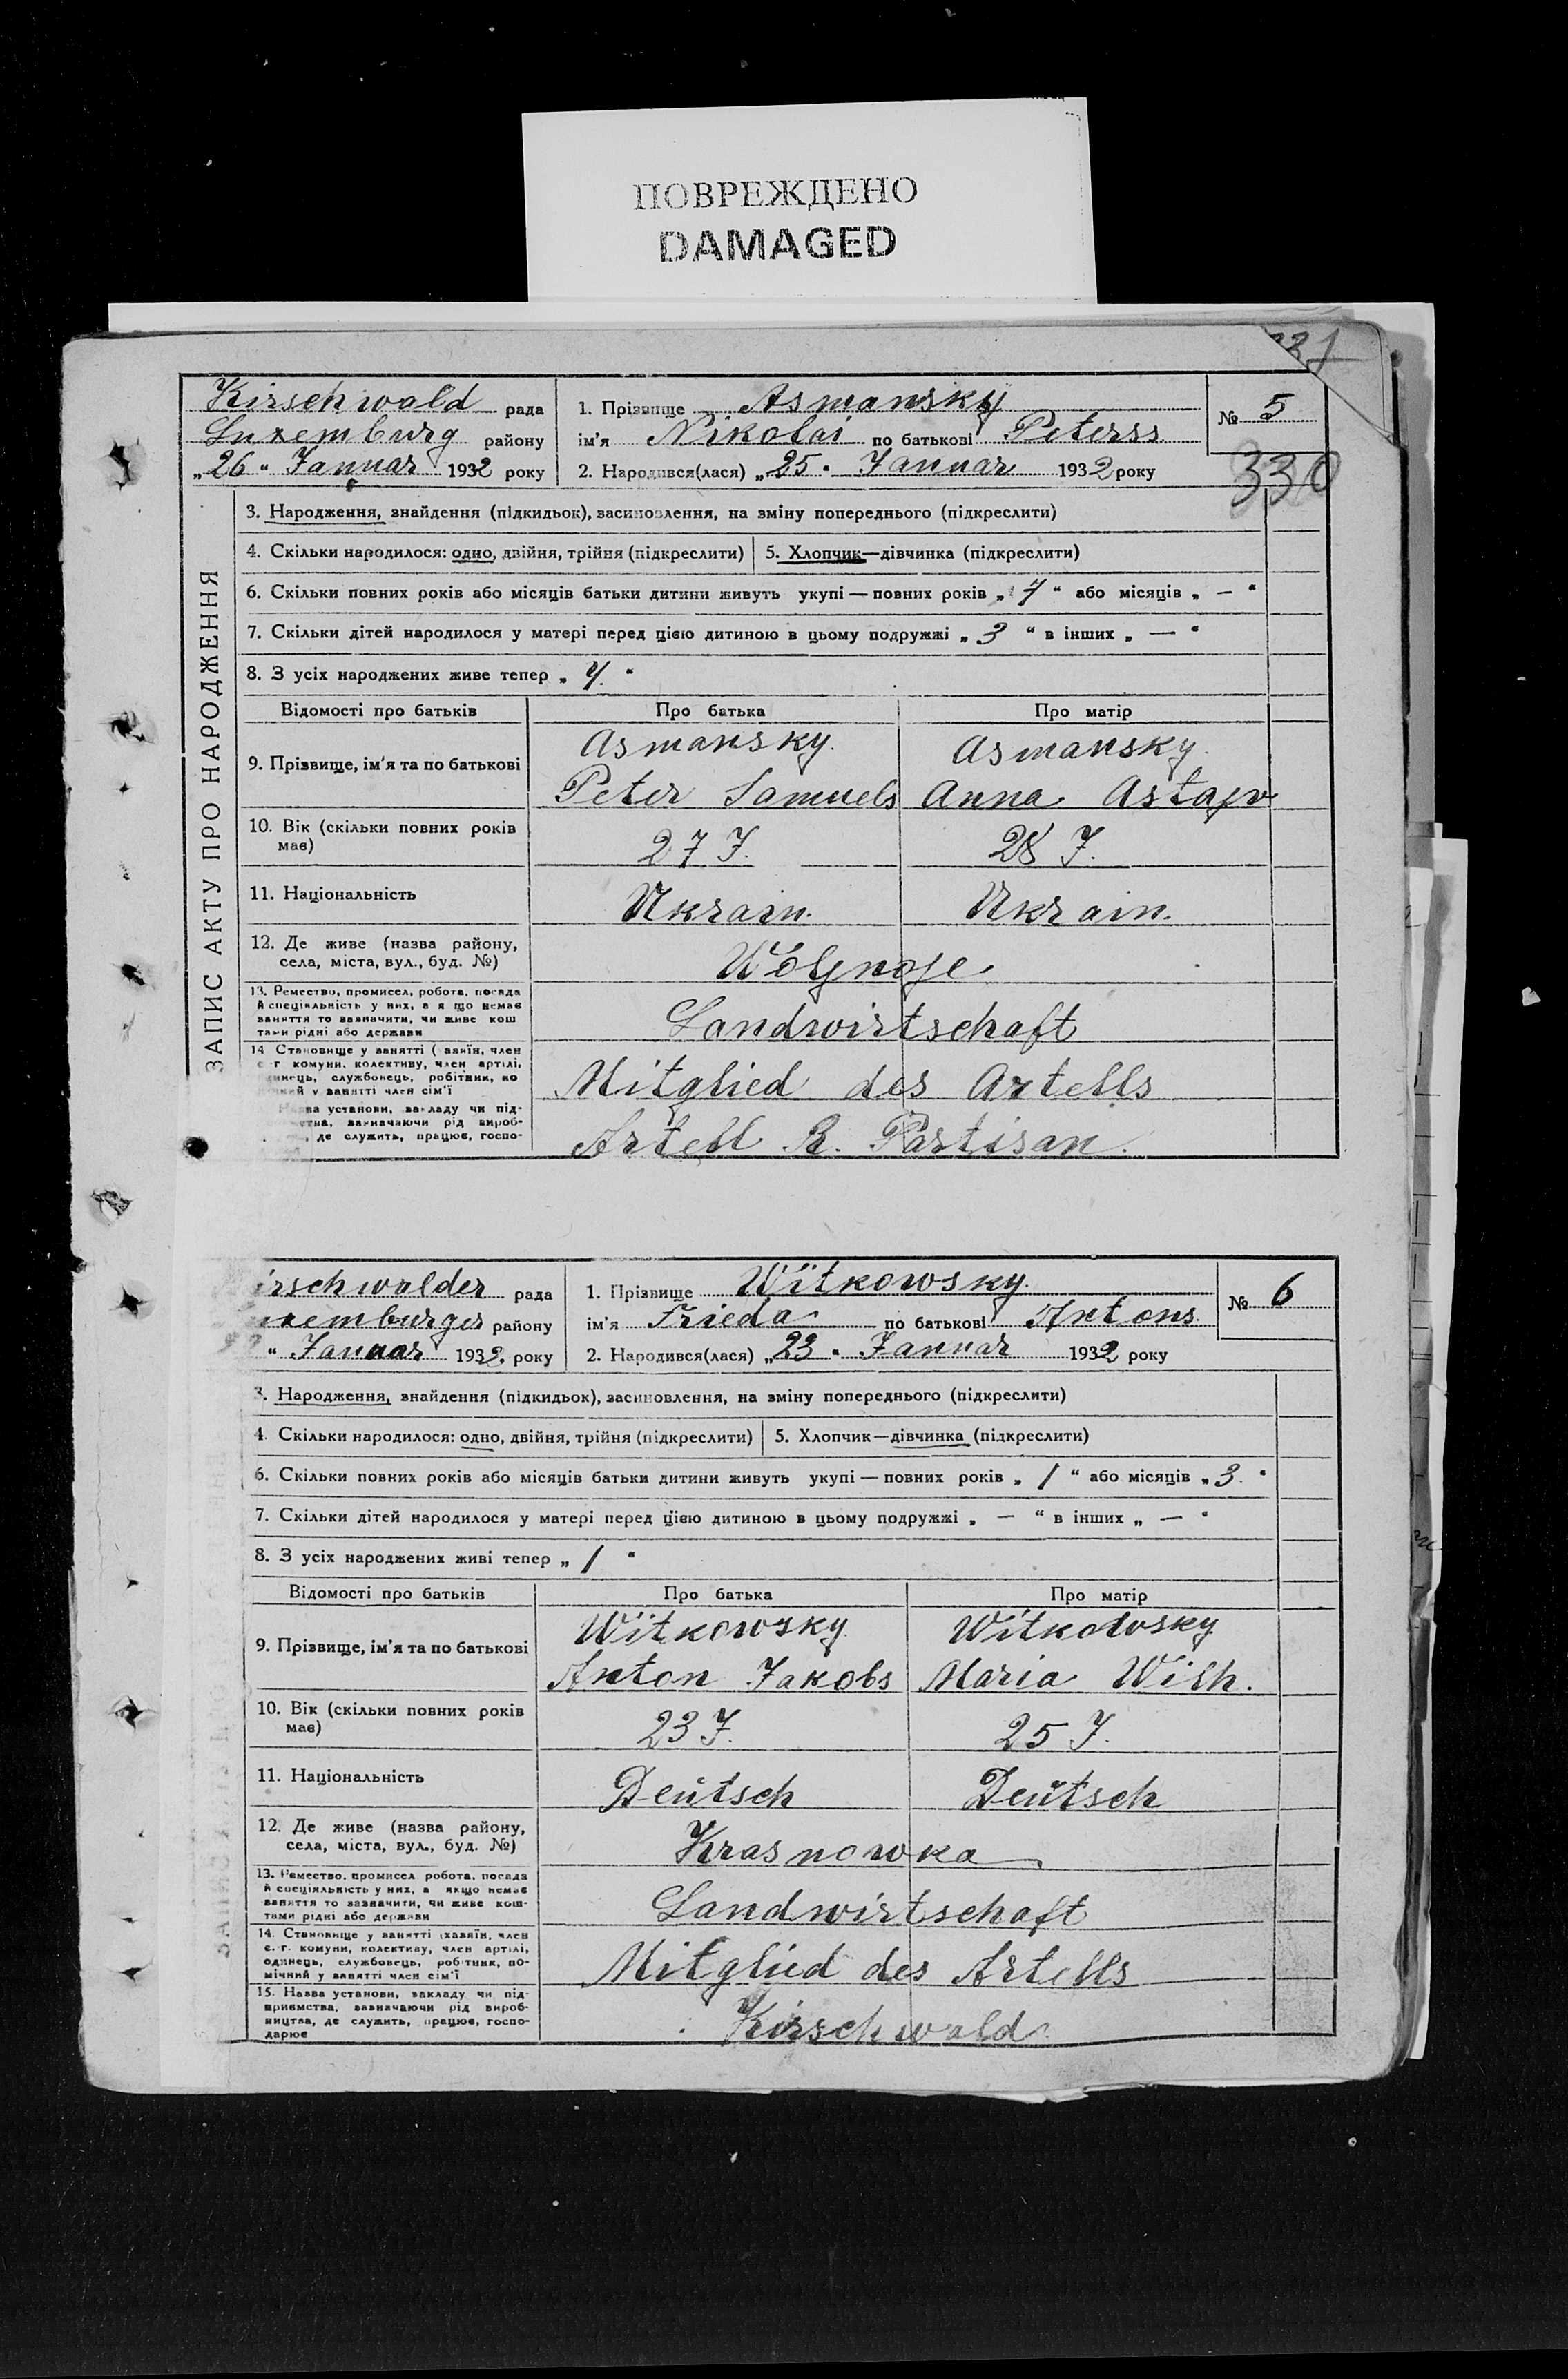 ПОВРЕЖДЕНО
DAMAGED
Kirschwald рада
Luxemburg району
„26“ Januar 1932 року
1. Прізвище Asmansky
ім'я Nikolai по батькові Peterss
2. Народився(лася) „25“ Januar 1932 року
№ 5
330
ЗАПИС АКТУ ПРО НАРОДЖЕННЯ
3. Народження, знайдення (підкидьок), засиновлення, на зміну попереднього (підкреслити)
4. Скільки народилося: одно, двійня, трійня (підкреслити) 5. Хлопчик—дівчинка (підкреслити)
6. Скільки повних років або місяців батьки дитини живуть укупі — повних років „7“ або місяців „—“
7. Скільки дітей народилося у матері перед цією дитиною в цьому подружжі „3“ в інших „—“
8. З усіх народжених живе тепер „4.“
Відомості про батьків Про батька Про матір
9. Прізвище, ім'я та по батькові
Asmansky. Asmansky.
Peter Samuels Anna
10. Вік (скільки повних років має)
27 J. 28 J.
11. Національність
Ukrain. Ukrain.
12. Де живе (назва району,
села, міста, вул., буд. №)
Wolynoje
13. Ремество, промисел, робота, посада
й спеціяльність у них, а я що немає
заняття то зазначити, чи живе кош
тами рідні або держави
Landwirtschaft
14 Становище у занятті (
г комуни, колективу, член артілі,
службовець, робітник, по
у занятті член сім'ї
Mitglied des Artells
установи, закладу чи під-
зазначаючи рід вироб-
де служить, працює, госпо-
Artell R. Partisan.
irschwalder рада
uxemburger району
“ Januar 1932. року
1. Прізвище Witkowsky.
ім'я Frieda по батькові Antons
2. Народився(лася) „23“ Januar 1932 року
№ 6
3. Народження, знайдення (підкидьок), засиновлення, на зміну попереднього (підкреслити)
4. Скільки народилося: одно, двійня, трійня (підкреслити) 5. Хлопчик—дівчинка (підкреслити)
6. Скільки повних років або місяців батьки дитини живуть укупі — повних років „1“ або місяців „3.“
7. Скільки дітей народилося у матері перед цією дитиною в цьому подружжі „—“ в інших „—“
8. З усіх народжених живі тепер „1“
Відомості про батьків Про батька Про матір
9. Прізвище, ім'я та по батькові
Witkowsky Witkowsky
Anton Jakobs Maria Wilh.
10. Вік (скільки повних років
має)
23 J. 25 J.
11. Національність
Deutsch Deutsch
12. Де живе (назва району,
села, міста, вул., буд. №)
Krasnowka
13. Ремество, промисел робота, посада
й спеціяльність у них, а якщо немає
заняття то зазначити, чи живе кош-
тами рідні або держави
Landwirtschaft
14. Становище у занятті (хазяїн, член
с.-г. комуни, колективу, член артілі,
одинець, службовець, робітник, по-
мічний у занятті член сім'ї
Mitglied des Artells
15. Назва установи, закладу чи під-
приємства, зазначаючи рід вироб-
ництва, де служить, працює, госпо-
дарює
Kirschwald